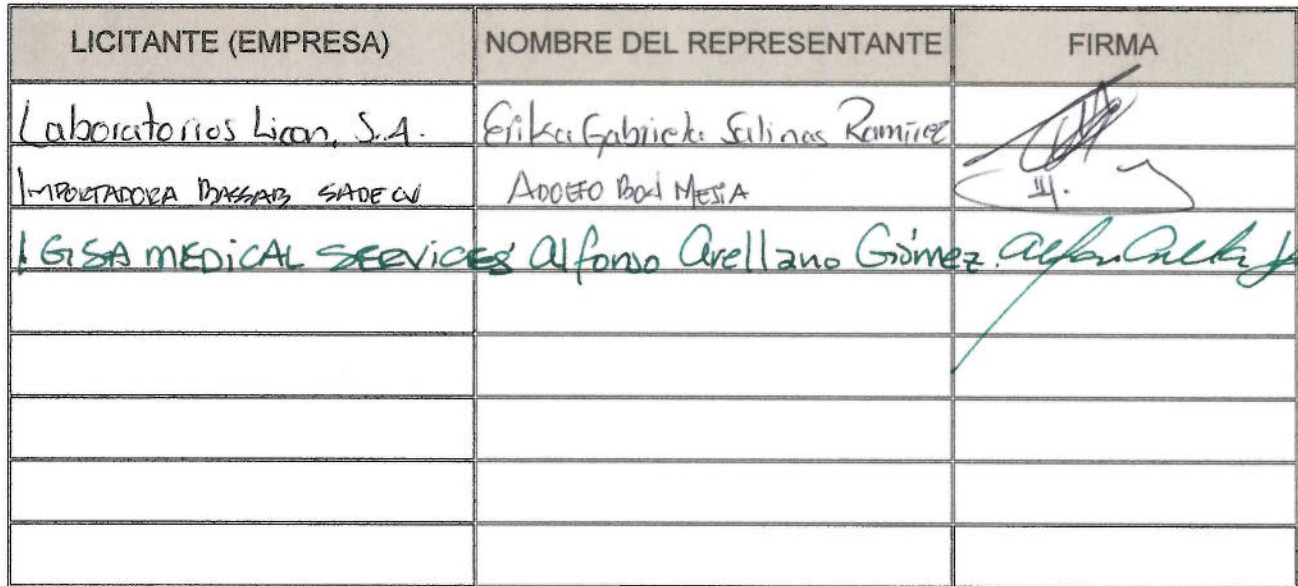 LICITANTE (EMPRESA) NOMBRE DEL REPRESENTANTE FIRMA
Laboratorios Licon, S.A. Erika Gabriela Salinas Ramírez
IMPORTADORA BASSAB SA DE CV ADOLFO MEJIA
GSA MEDICAL SERVICES Alfonso Arellano Gómez.